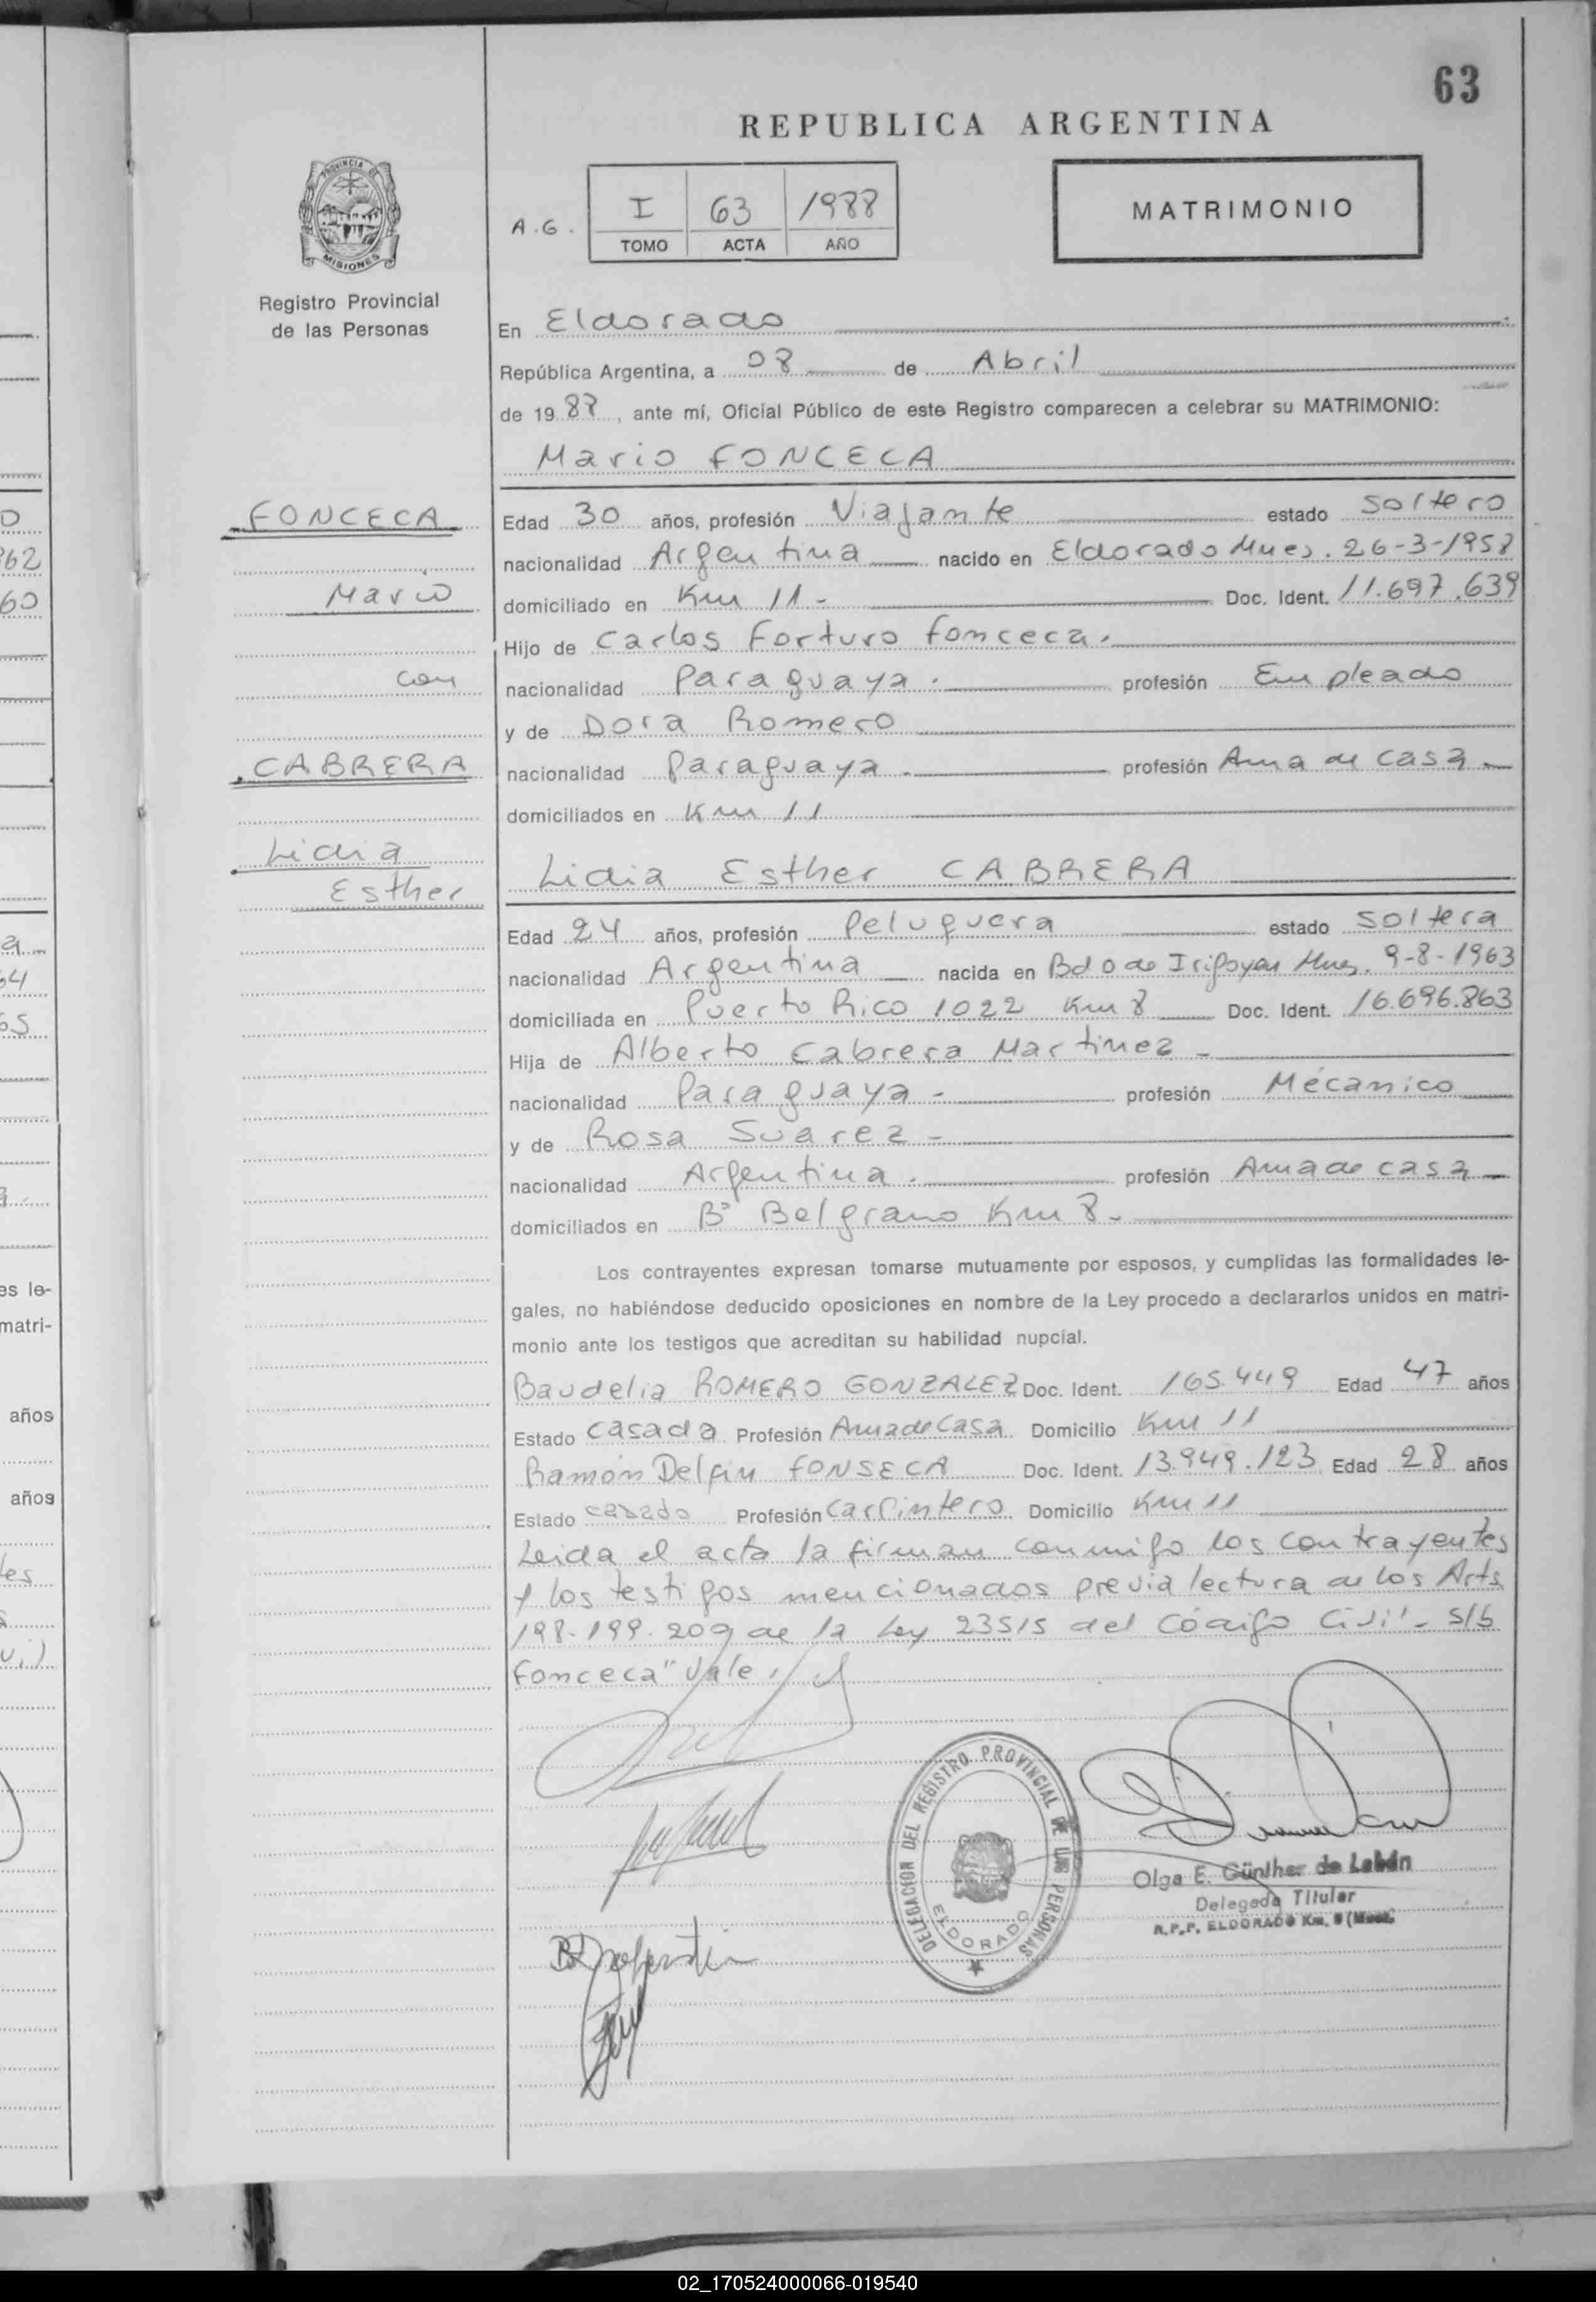 63
REPUBLICA ARGENTINA
PROVINCIA DE
MISIONES
Registro Provincial
de las Personas
A.G.
I 63 1988
TOMO ACTA AÑO
MATRIMONIO
En Eldorado
República Argentina, a 08 de Abril
de 1988, ante mí, Oficial Público de este Registro comparecen a celebrar su MATRIMONIO:
Mario FONCECA
FONCECA
Mario
con
CABRERA
Lidia
Esther
Edad 30 años, profesión Viajante estado soltero
nacionalidad Argentina nacido en Eldorado Mnes. 26-3-1958
domiciliado en Km 11- Doc. Ident. 11.697.639
Hijo de Carlos Forturo Fonceca.
nacionalidad Paraguaya. profesión Empleado
y de Dora Romero
nacionalidad Paraguaya. profesión Ama de casa
domiciliados en Km 11
Lidia Esther CABRERA
Edad 24 años, profesión Peluquera estado soltera
nacionalidad Argentina nacida en Bdo de Irigoyen Mnes. 9-8-1963
domiciliada en Puerto Rico 1022 Km 8 Doc. Ident. 16.696.863
Hija de Alberto Cabrera Martinez
nacionalidad Paraguaya- profesión Mécanico
y de Rosa Suarez-
nacionalidad Argentina. profesión Ama de casa
domiciliados en B° Belgrano Km 8-
Los contrayentes expresan tomarse mutuamente por esposos, y cumplidas las formalidades le-
gales, no habiéndose deducido oposiciones en nombre de la Ley procedo a declararlos unidos en matri-
monio ante los testigos que acreditan su habilidad nupcial.
Baudelia ROMERO GONZALEZ Doc. Ident. 165.449 Edad 47 años
Estado Casada Profesión Ama de Casa Domicilio Km 11
Ramón Delfin FONSECA Doc. Ident. 13.949.123 Edad 28 años
Estado casado Profesión Carpintero Domicilio Km 11
Leida el acta la firman conmigo los contrayentes
y los testigos mencionados previa lectura de los Arts
198-199-209 de la Ley 23515 del Código Civil- S/b
Fonceca" Vale.
DELEGACION DEL REGISTRO PROVINCIAL DE LAS PERSONAS
ELDORADO
Olga E. Günther de Labán
Delegada Titular
R.P.P. ELDORADO Km. 9
es le-
matri-
años
años
02_170524000066-019540